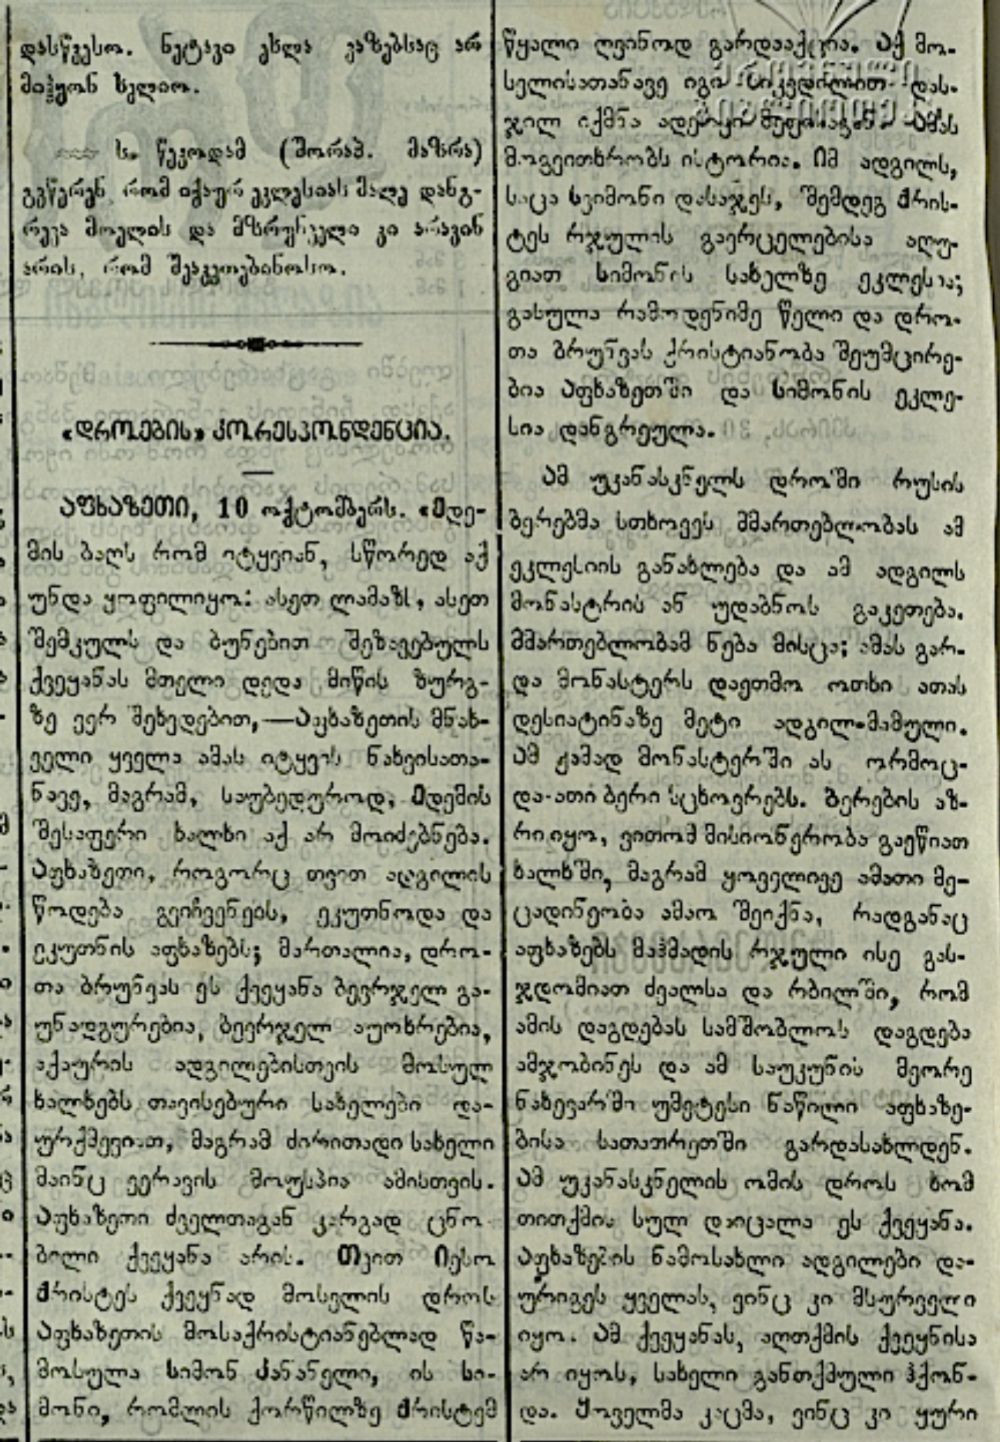 დასწვესო. ნეტავი ეხლა ვაზებსაც არ
მიჰყონ ხელიო.
ს. წევოდამ (შორაპ. მაზრა)
გვწერენ, რომ იქაურ ეკლესიას მალე დანგ-
რევა მოელის და მზრუნველი კი არავინ
არის, რომ შეაკეთებინოსო.
«დროების» კორესპონდენცია.
აფხაზეთი, 10 ოქტომბერს. «ედე-
მის ბაღს რომ იტყვიან, სწორედ აქ
უნდა ყოფილიყო: ასეთ ლამაზს, ასეთ
შემკულს და ბუნებით შეზავებულს
ქვეყანას მთელი დედა მიწის ზურგ-
ზე ვერ შეხვდებით,—აფხაზეთის მნახ-
ველი ყველა ამას იტყვის ნახვისათა-
ნავე, მაგრამ, საუბედუროდ, ედემის
შესაფერი ხალხი აქ არ მოიძებნება.
აფხაზეთი, როგორც თვით ადგილის
წოდება გვიჩვენებს, ეკუთნოდა და
ეკუთნის აფხაზებს; მართალია, დრო-
თა ბრუნვას ეს ქვეყანა ბევრჯელ გა-
უნადგურებია, ბევრჯელ აუოხრებია,
აქაურის ადგილებისთვის მოსულ
ხალხებს თავისებური სახელები და-
ურქმევიათ, მაგრამ ძირითადი სახელი
მაინც ვერავის მოუსპია ამისთვის.
აფხაზეთი ძველთაგან კარგად ცნო-
ბილი ქვეყანა არის. თვით იესო
ქრისტეს ქვეყნად მოსვლის დროს
აფხაზეთის მოსაქრისტიანებლად წა-
მოსულა სიმონ კანანელი, ის სი-
მონი, რომლის ქორწილზე ქრისტემ
წყალი ღვინოდ გარდააქცია. აქ მო-
სვლისათანავე იგი სიკვდილით დას-
ჯილ იქმნა ადერკი მეფისაგან. ამას
მოგვითხრობს ისტორია. იმ ადგილს,
საცა სვიმონი დასაჯეს, შემდეგ ქრის-
ტეს რჯულის გავრცელებისა აღუ-
გიათ სიმონის სახელზე ეკლესია;
გასულა რამოდენიმე წელი და დრო-
თა ბრუნვას ქრისტიანობა შეუმცირე-
ბია აფხაზეთში და სიმონის ეკლე-
სია დანგრეულა.
ამ უკანასკნელს დროში რუსის
ბერებმა სთხოვეს მმართებლობას ამ
ეკლესიის განახლება და ამ ადგილს
მონასტრის ან უდაბნოს გაკეთება.
მმართებლობამ ნება მისცა; ამას გარ-
და მონასტერს დაეთმო ოთხი ათას
დესიატინაზე მეტი ადგილ-მამული.
ამ ჟამად მონასტერში ას ორმოც-
და-ათი ბერი სცხოვრებს. ბერების აზ-
რი იყო, ვითომ მისიონერობა გაეწიათ
ხალხში, მაგრამ ყოველივე ამათი მე-
ცადინეობა ამაო შეიქნა, რადგანაც
აფხაზებს მაჰმადის რჯული ისე გას-
ჯდომიათ ძვალსა და რბილში, რომ
ამის დაგდებას სამშობლოს დაგდება
ამჯობინეს და ამ საუკუნის მეორე
ნახევარში უმეტესი ნაწილი აფხაზე-
ბისა სათათრეთში გარდასახლდენ.
ამ უკანასკნელის ომის დროს ხომ
თითქმის სულ დაიცალა ეს ქვეყანა.
აფხაზების ნამოსახლი ადგილები და-
ურიგეს ყველას, ვინც კი მსურველი
იყო. ამ ქვეყანას, აღთქმის ქვეყნისა
არ იყოს, სახელი განთქმული ჰქონ-
და. ყოველმა კაცმა, ვინც კი ყური